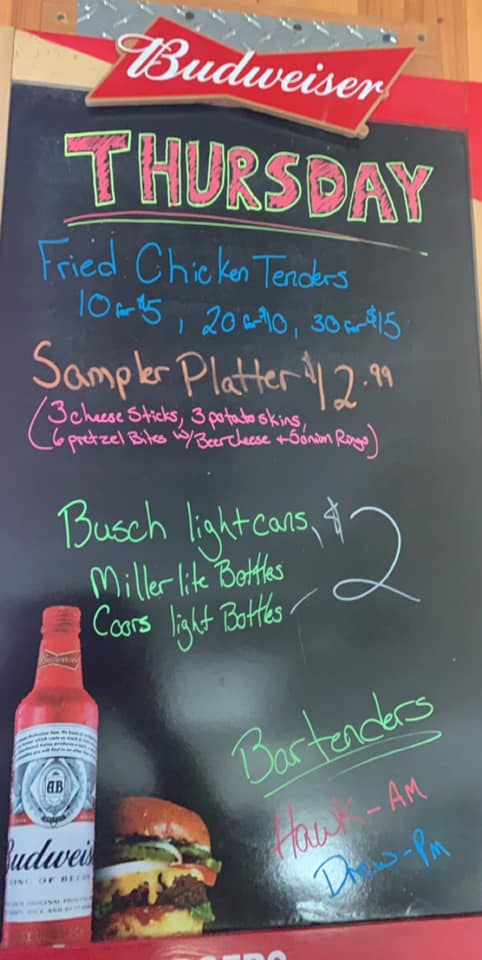 Budweiser
THURSDAY
Fried Chicken Tenders
10 for $5, 20 for $10, 30 for $15
Sampler Platter $12.99
(3 cheese Sticks, 3 potato skins,
6 pretzel Bites w/ Beer Cheese + 5 onion Rings)
Busch light cans, $2
Miller lite Bottles
Coors light Bottles
Bartenders
Hawk - AM
Drew - PM
Budweiser
AB
Budweis